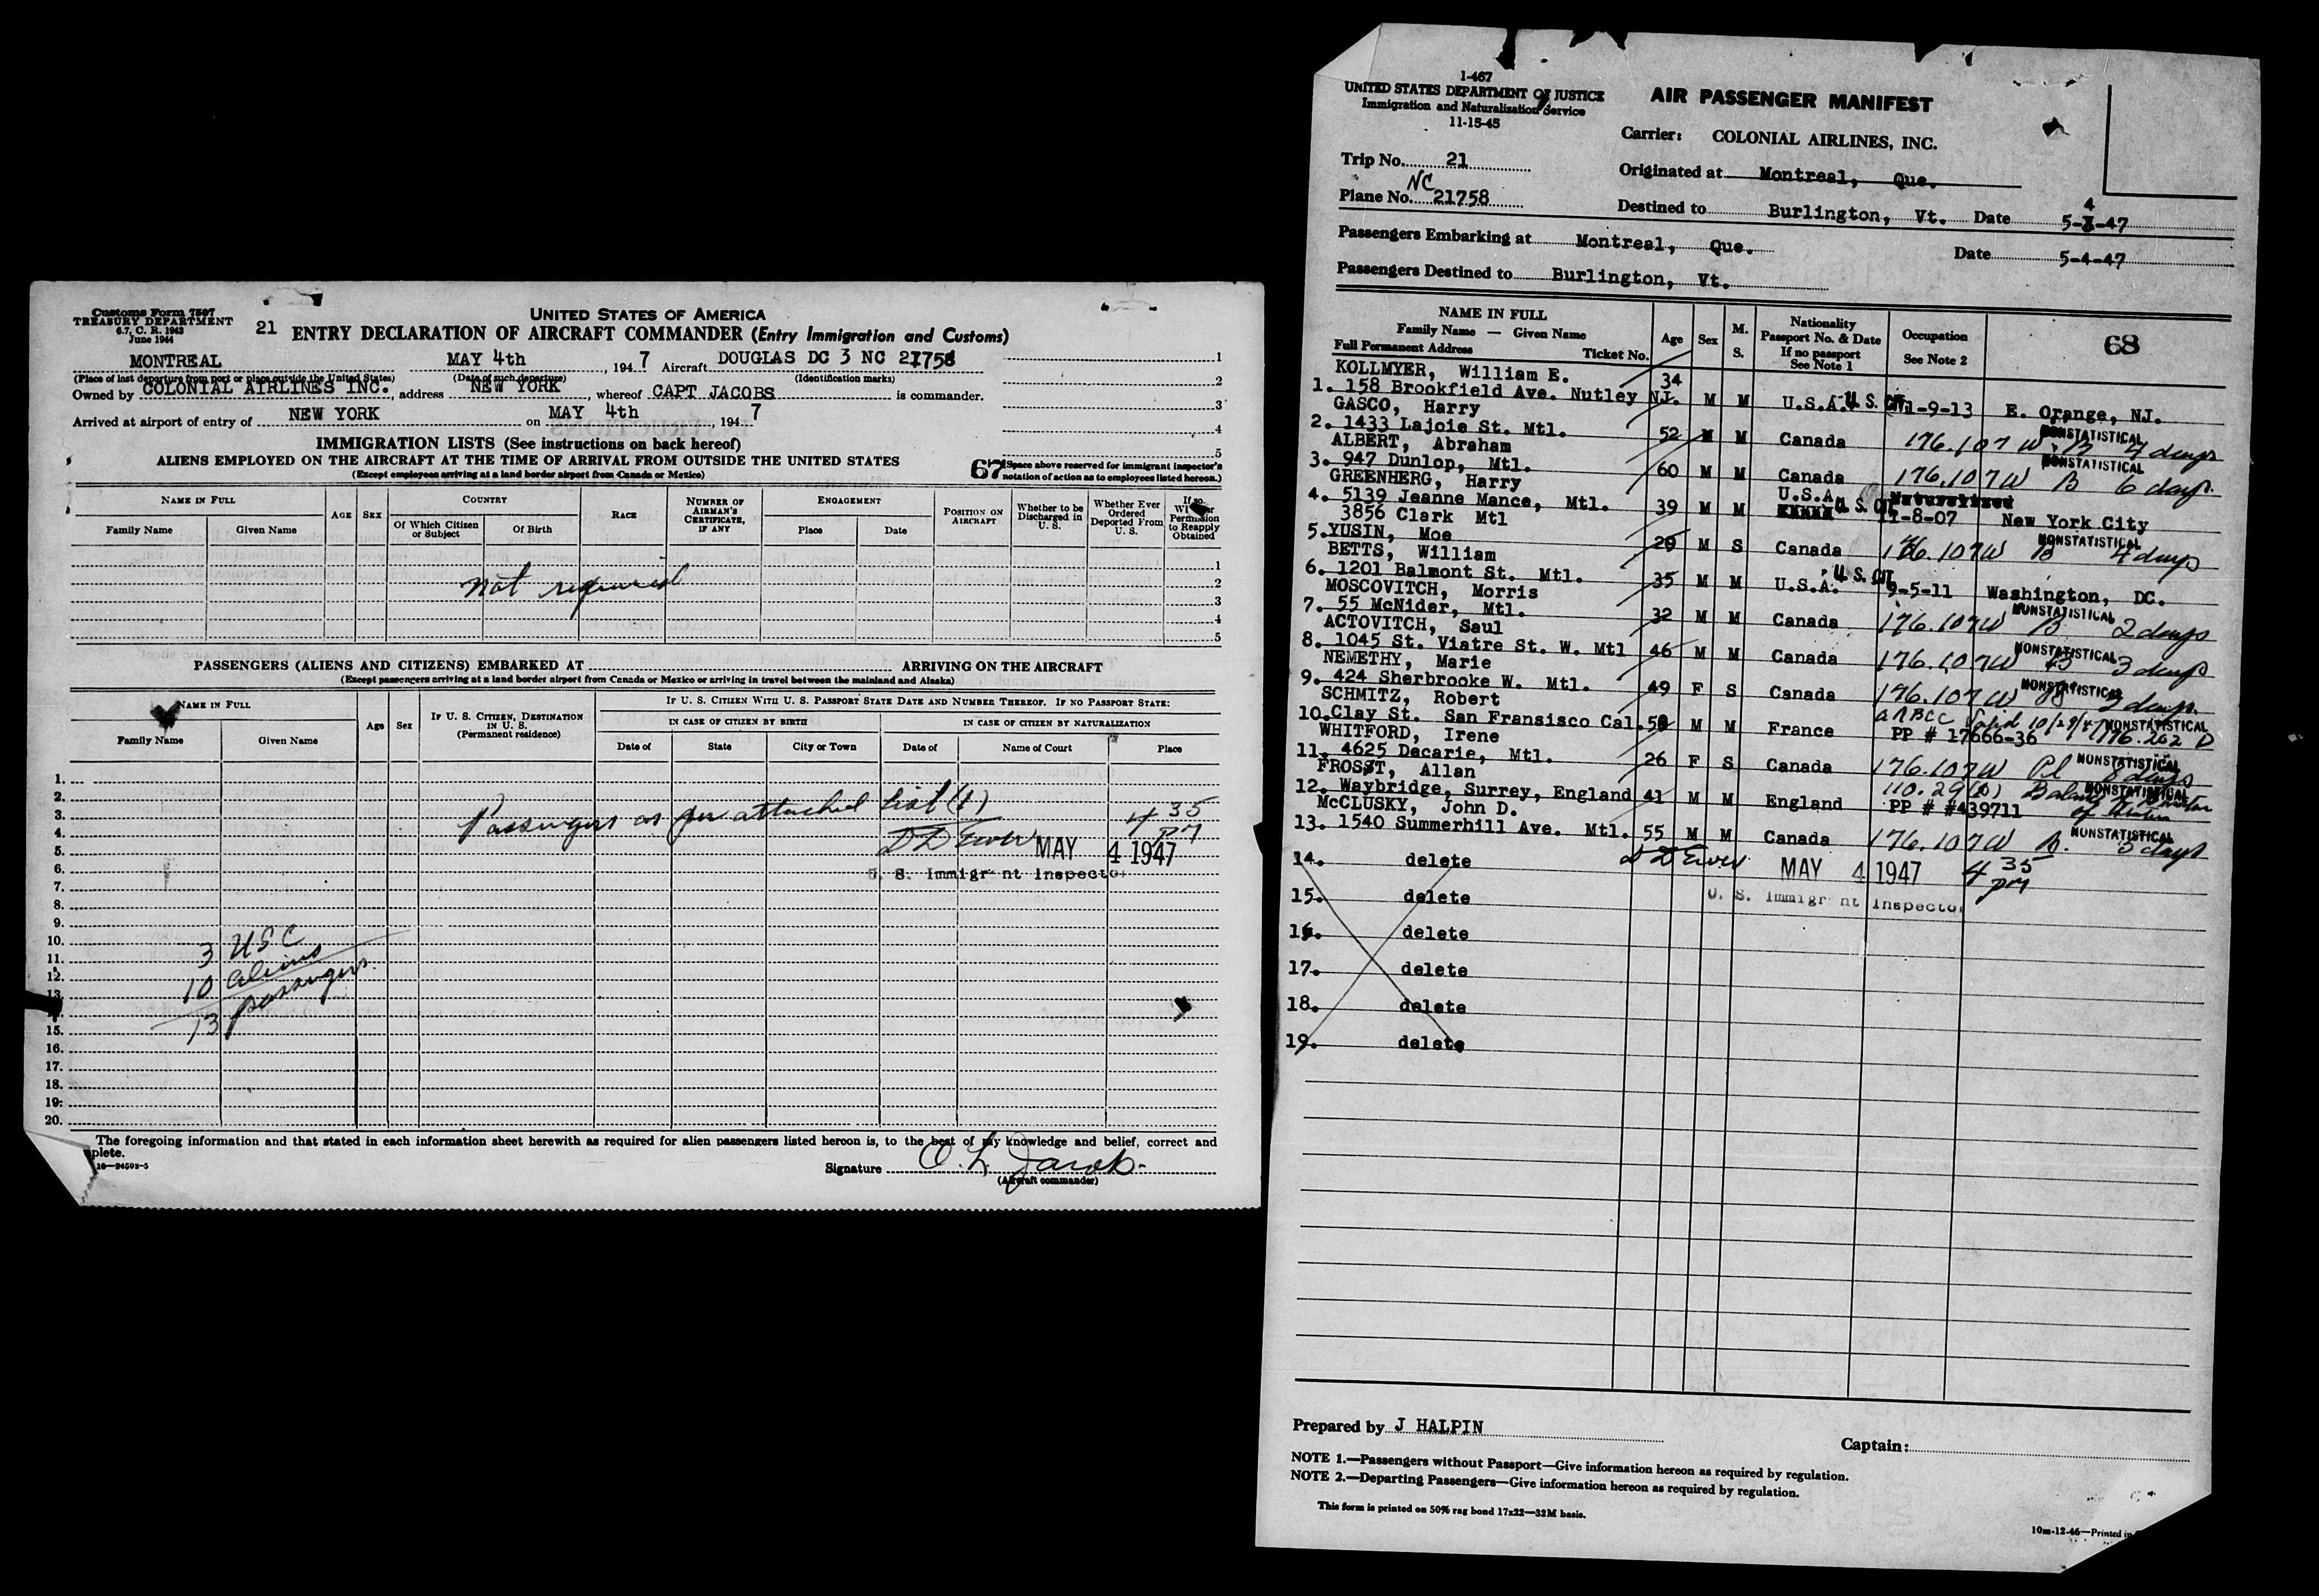 Customs Form 7507
TREASURY DEPARTMENT
6.7, C. R. 1943
June 1944
UNITED STATES OF AMERICA
21 ENTRY DECLARATION OF AIRCRAFT COMMANDER (Entry Immigration and Customs)
MONTREAL MAY 4th , 194 7 Aircraft DOUGLAS DC 3 NC 21758
(Place of last departure from port or place outside the United States) (Date of such departure) (Identification marks)
Owned by COLONIAL AIRLINES INC. , address NEW YORK , whereof CAPT JACOBS is commander.
Arrived at airport of entry of NEW YORK on MAY 4th 194 7
1
2
3
4
5
IMMIGRATION LISTS (See instructions on back hereof)
ALIENS EMPLOYED ON THE AIRCRAFT AT THE TIME OF ARRIVAL FROM OUTSIDE THE UNITED STATES
(Except employees arriving at a land border airport from Canada or Mexico)
67 (Space above reserved for immigrant inspector's notation of action as to employees listed hereon.)
NAME IN FULL
Family Name Given Name
AGE SEX
COUNTRY
Of Which Citizen or Subject Of Birth
RACE
NUMBER OF AIRMAN'S CERTIFICATE, IF ANY
ENGAGEMENT
Place Date
POSITION ON AIRCRAFT
Whether to be Discharged in U. S.
Whether Ever Ordered Deported From U. S.
If so, Permission to Reapply Obtained
1
not required 2
3
4
5
PASSENGERS (ALIENS AND CITIZENS) EMBARKED AT ARRIVING ON THE AIRCRAFT
(Except passengers arriving at a land border airport from Canada or Mexico or arriving in travel between the mainland and Alaska)
NAME IN FULL
Family Name Given Name
Age Sex
IF U. S. CITIZEN, DESTINATION IN U. S.
(Permanent residence)
IF U. S. CITIZEN WITH U. S. PASSPORT STATE DATE AND NUMBER THEREOF. IF NO PASSPORT STATE:
IN CASE OF CITIZEN BY BIRTH IN CASE OF CITIZEN BY NATURALIZATION
Date of State City or Town Date of Name of Court Place
1.
2.
3. Passengers as per attached list (1) 4 35
4. PM
5. MAY 4 1947
6. U. S. Immigrant Inspector
7.
8.
9.
10. 3 USC
11.
12. 10 aliens
13.
13 passengers
15.
16.
17.
18.
19.
20.
The foregoing information and that stated in each information sheet herewith as required for alien passengers listed hereon is, to the best of my knowledge and belief, correct and
plete.
16—24592-5
Signature O. L. Jacobs
(Aircraft commander)
1-467
UNITED STATES DEPARTMENT OF JUSTICE
Immigration and Naturalization Service
11-15-45
AIR PASSENGER MANIFEST
Carrier: COLONIAL AIRLINES, INC.
Trip No. 21
Originated at Montreal, Que.
NC
Plane No. 21758
4
Destined to Burlington, Vt. Date 5-3-47
Passengers Embarking at Montreal, Que. Date 5-4-47
Passengers Destined to Burlington, Vt.
NAME IN FULL
Family Name — Given Name
Full Permanent Address Ticket No.
Age Sex M. S.
Nationality
Passport No. & Date
If no passport
See Note 1
Occupation
See Note 2
68
KOLLMYER, William E.
1. 158 Brookfield Ave. Nutley NJ. 34 M M U.S.A. U.S. CIT 11-9-13 E. Orange, NJ.
GASCO, Harry
2. 1433 Lajoie St. Mtl. 52 M M Canada 176.107 W NONSTATISTICAL B 4 days
ALBERT, Abraham
3. 947 Dunlop, Mtl. 60 M M Canada 176.107 W NONSTATISTICAL B 6 days
GREENHERG, Harry
4. 5139 Jeanne Mance, Mtl. 39 M M U.S.A. U.S. CIT Naturalized 11-8-07 New York City
3856 Clark Mtl
5. YUSIN, Moe 29 M S Canada 176.107 W NONSTATISTICAL B 4 days
BETTS, William
6. 1201 Balmont St. Mtl. 35 M M U.S.A. U.S. CIT 9-5-11 Washington, DC.
MOSCOVITCH, Morris
7. 55 McNider, Mtl. 32 M M Canada 176.107 W NONSTATISTICAL B 2 days
ACTOVITCH, Saul
8. 1045 St. Viatre St. W. Mtl 46 M M Canada 176.107 W NONSTATISTICAL B 3 days
NEMETHY, Marie
9. 424 Sherbrooke W. Mtl. 49 F S Canada 176.107 W NONSTATISTICAL 3 days
SCHMITZ, Robert
10. Clay St. San Fransisco Cal. 50 M M France ARBCC Valid 10/29/47 NONSTATISTICAL PP # 17666-36 176.202 D
WHITFORD, Irene
11. 4625 Decarie, Mtl. 26 F S Canada 176.107 W Pl NONSTATISTICAL 8 days
FROSST, Allan
12. Waybridge, Surrey, England 41 M M England 110.29(b) NONSTATISTICAL PP # #439711
McCLUSKY, John D.
13. 1540 Summerhill Ave. Mtl. 55 M M Canada 176.107 W B. NONSTATISTICAL 3 days
14. delete MAY 4 1947 4 35 pm
15. delete U. S. Immigrant Inspector
16. delete
17. delete
18. delete
19. delete
Prepared by J HALPIN
Captain:
NOTE 1.—Passengers without Passport—Give information hereon as required by regulation.
NOTE 2.—Departing Passengers—Give information hereon as required by regulation.
This form is printed on 50% rag bond 17x22—32M basis.
10m-12-46—Printed in